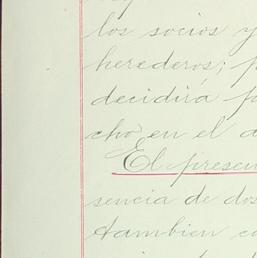 los socios y
herederos; p
decidirá p
cho, en el a
El presen
sencia de dos
tambien co